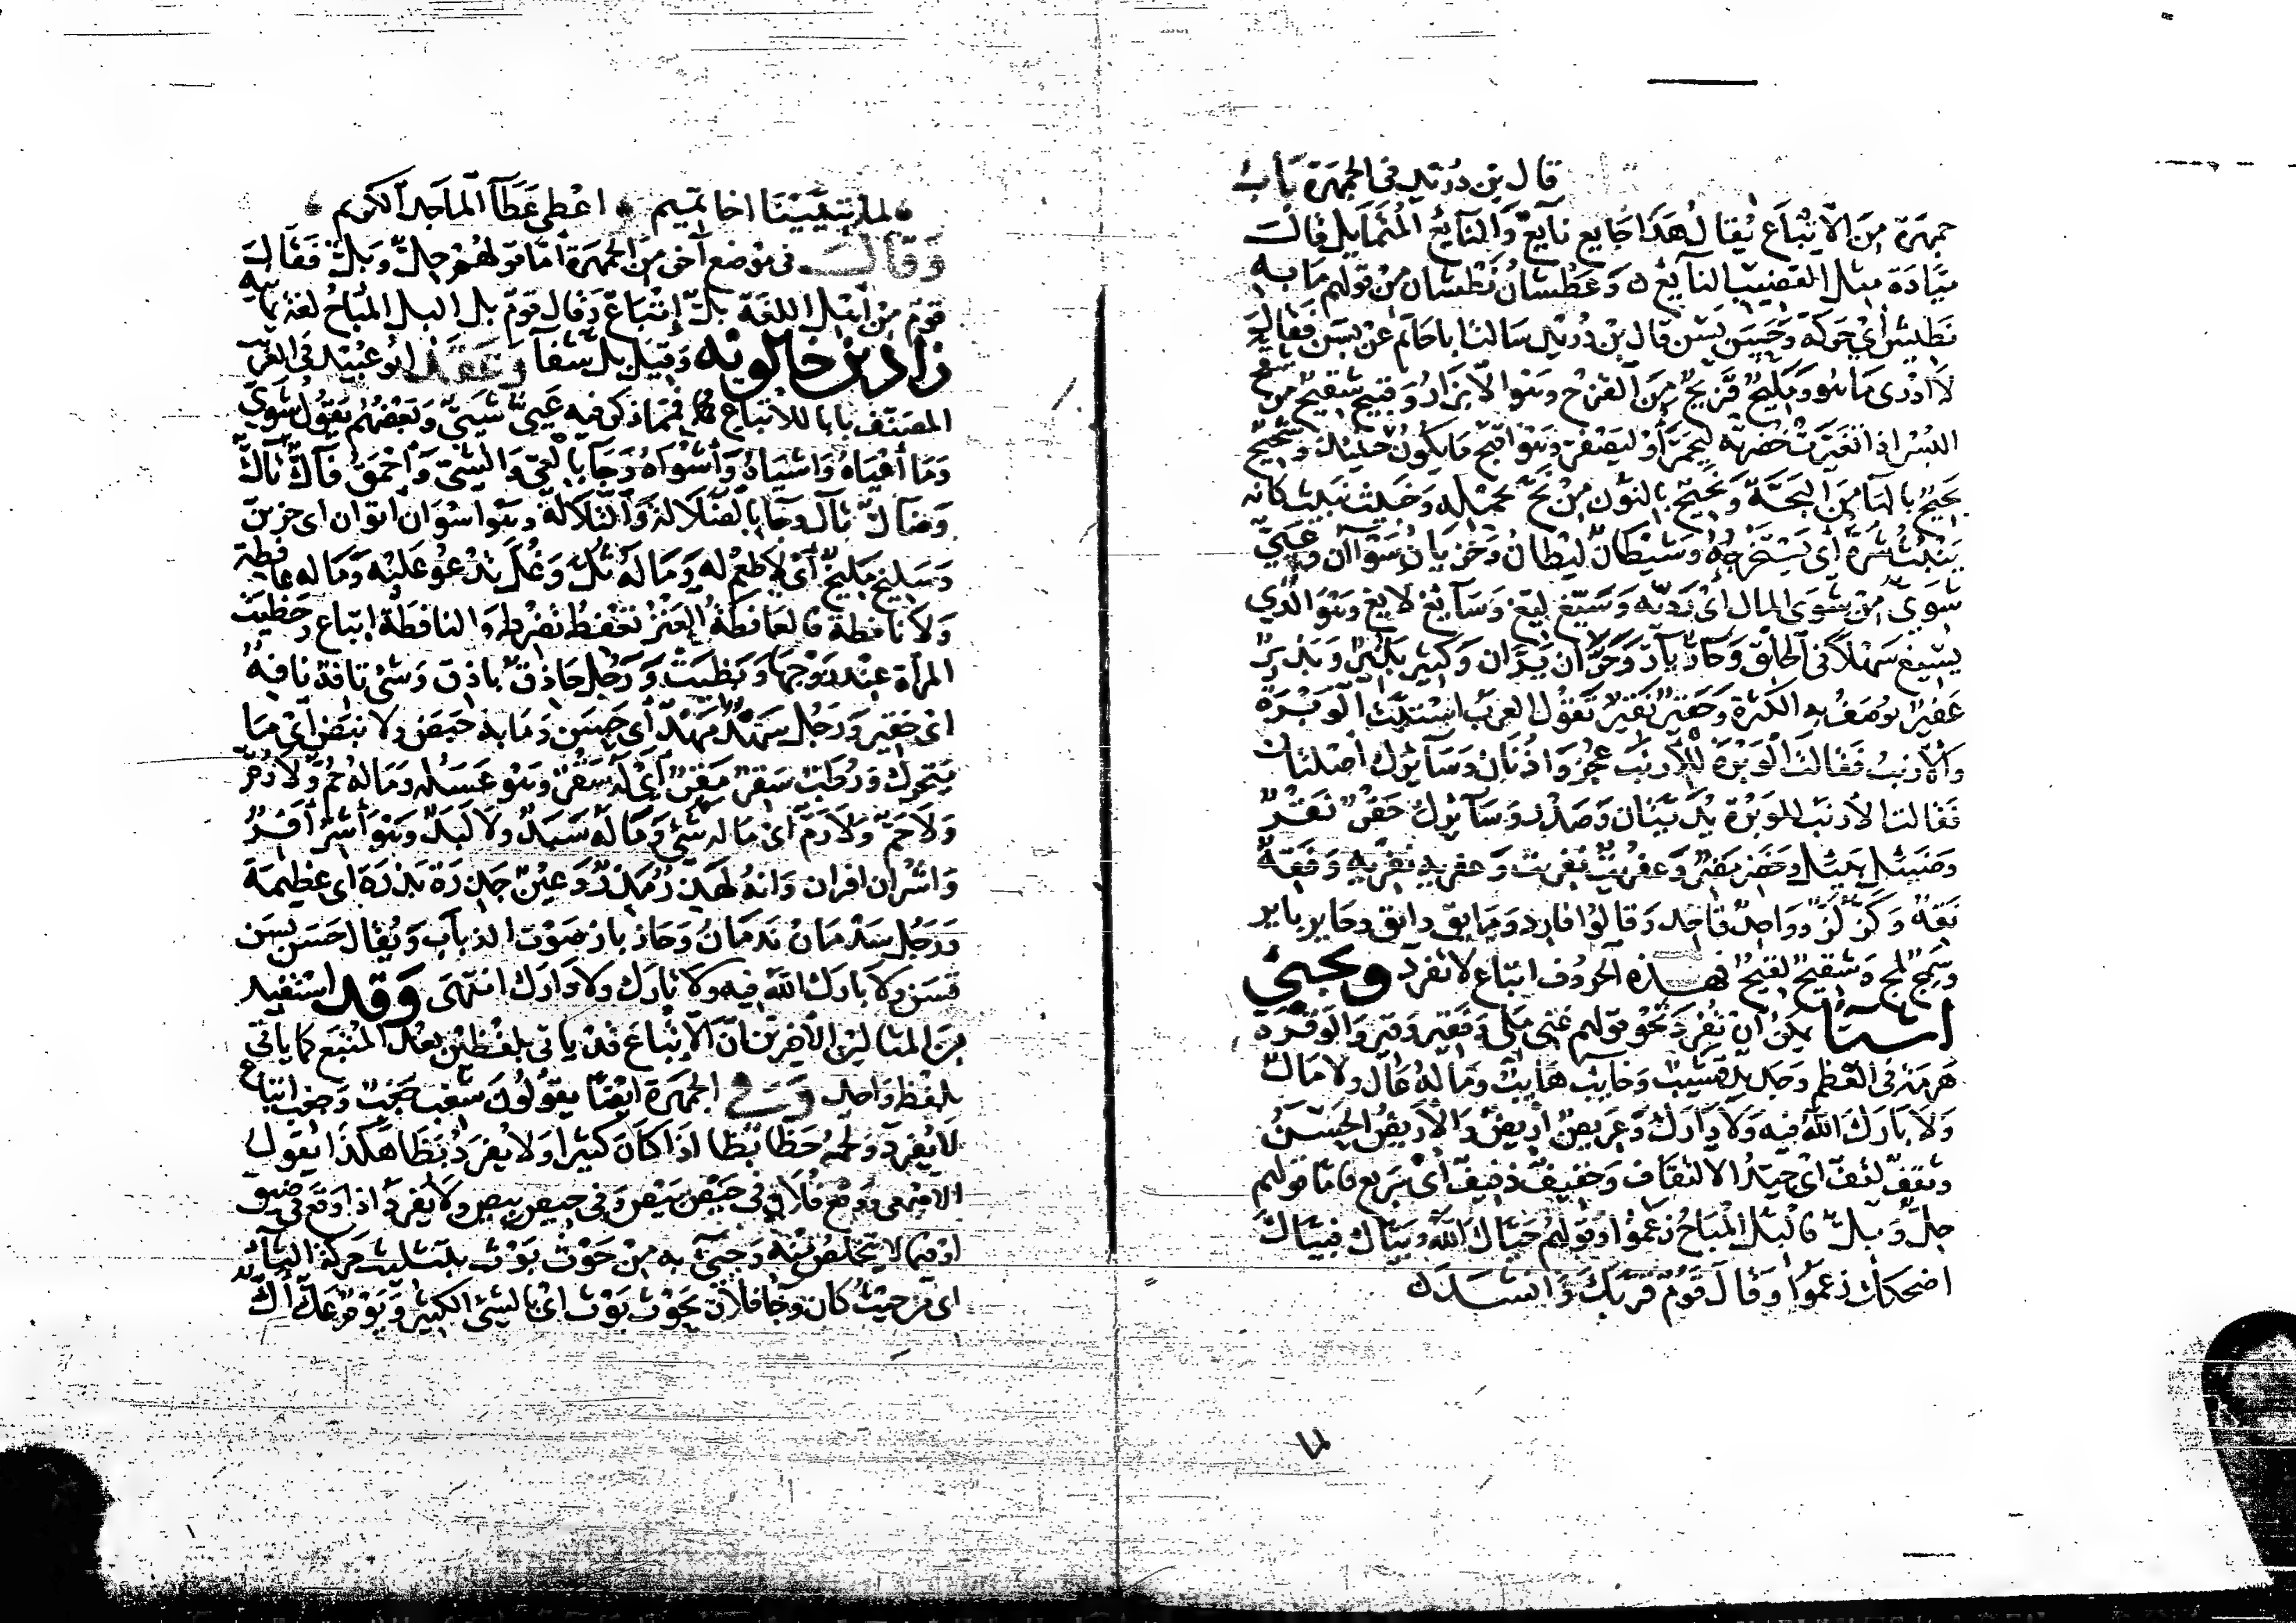 قال بن دريد في الجمهرة باب
جمهرة من الاتباع يقال هذا جايع نايع والنايع المتمايل قالت
ميادة ميل القضيب النايع ه وعطشان نطشان من قولهم ما به
نطيش اي حركة وحسن بسن قال بن دريد سالت اباحاتم عن بسن فقال
لا ادري ما هو ومليح قزيح من القزح وهو الابزار وقبيح شقيح من شقح
البسر اذا تغيرت خضرته ليحمر او ليصفر وهو اقبح ما يكون حينيذ وشحيح
بحيح بالبا من البحة ونحيح بالنون من نح بحمله وخبيث نبيث كانه
ينبث شره اي يستخرجه وشيطان ليطان وخزيان سوآن وعيي
شوي من شوى المال اي رديه وسيغ ليغ وسايغ لايغ وهو الذي
يسيغ سهلا في الحلق وحار يار وحران يران وكثير بثير وبذير
عفير يوصف به الكثرة وحقير نقير تقول العرب استبت الوبرة
والارنب فقالت الوبرة للارنب عجز واذنان وسايرك اصلتان
فقالت الارنب للوبرة يديتان وصدر وسايرك حقر نقر
وضئيل بئيل وخضر مضر وعفريت نفريت وعفرية نفرية وفقة
نقة وكز لز وواحد قاحد وقالوا فارد ومايق دايق وحاير باير
وسمج لمج وشقيح لقيح فهذه الحروف اتباع لا تفرد وتجيئ
اشيا يمكن ان تفرد نحو قولهم غني ملي وفقير وقير والوقرة
هزمة في العظم وجديد قشيب وخايب هايب وما له عال ولا مال
ولا بارك الله فيه ولا دارك وعريض اريض والاريض الحسن
وثقف لقف اي جيد الالتقاف وخفيف ذفيف اي سريع فاما قولهم
حل وبل فالبل المباح زعموا وقولهم حياك الله وبياك فبياك
اضحكك زعموا وقال قوم قربك وانشد
لما
لما تبيينا اخا تميم اعطى عطآ الماجد الكريم
وقال في موضع آخر من الجمهرة اما قولهم حل وبل فقال
قوم من اهل اللغة بل اتباع وقال قوم بل البل المباح لغة يمانيه
زاد بن خالويه وقيل بل شفآ وعقد ابو عبيد في الغريب
المصنف بابا للاتباع فمما ذكر فيه عيي شيي وبعضهم يقول شوي
وما أعياه واشياه وأشواه وجا بالعي والشي وأحمق فاك تاك
وضال تال وجا بالضلالة والتلالة وهو اسوان اتوان اي حزين
وسليخ مليخ أي لا طعم له وما له ثل وغل يدعو عليه وما له عافطة
ولا نافطة فالعافطة العنز تعفط تضرط والنافطة اتباع وحظيت
المرأة عند زوجها وبظيت ورجل حاذق باذق وشي تافه نافه
اي حقير ورجل سهد مهد أي حسن وما به حبض ولا نبض اي ما
يتحرك ورطب سقر مقر أي له سقر وهو عسله وما له حم ولا رم
ولا حم ولا رم اي ما له شي وما له سبد ولا لبد وهو أشر أفر
واشران افران وانه لهذر مذر وعين حدرة بدرة اى عظيمة
ورجل سدمان ندمان وحاذ باز صوت الذباب ويقال حسن بسن
قسن ولا بارك الله فيه ولا تارك ولا دارك انتهى وقد استفيد
من المثالين الاخيرين ان الاتباع قد ياتي بلفظين بعد المتبع كما ياتي
بلفظ واحد وفي الجمهرة ايضا يقولون شغب جغب وجغب اتباع
لا يفرد ولحمه خظا بظا اذا كان كثيرا ولا يفرد بظا هكذا يقول
الاصمعي ووقع فلان في حيص بيص وفي حيص بيص ولا يفرد اذا وقع في ضيق
او فيما لا يتخلص منه وجيئ به من حوث بوث بتثليث حركة الثاء
اي من حيث كان وجا فلان بحوث بوث اي بالشئ الكثير ويوم عك أك